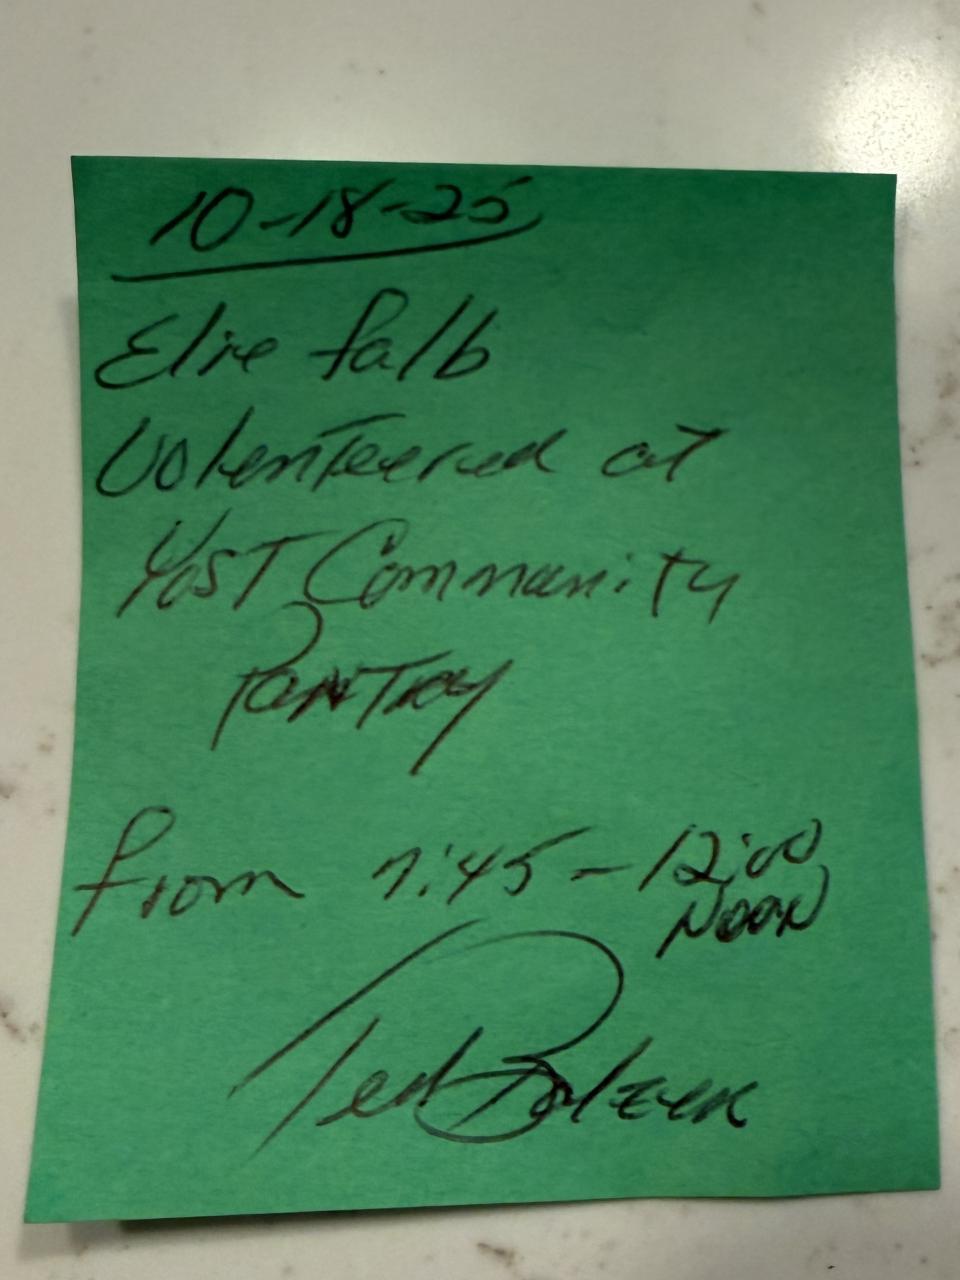 10-18-25
Elire Falb
Volenteered at
YOST Community
PANTRY
From 7:45 - 12:00
NOON
Ted